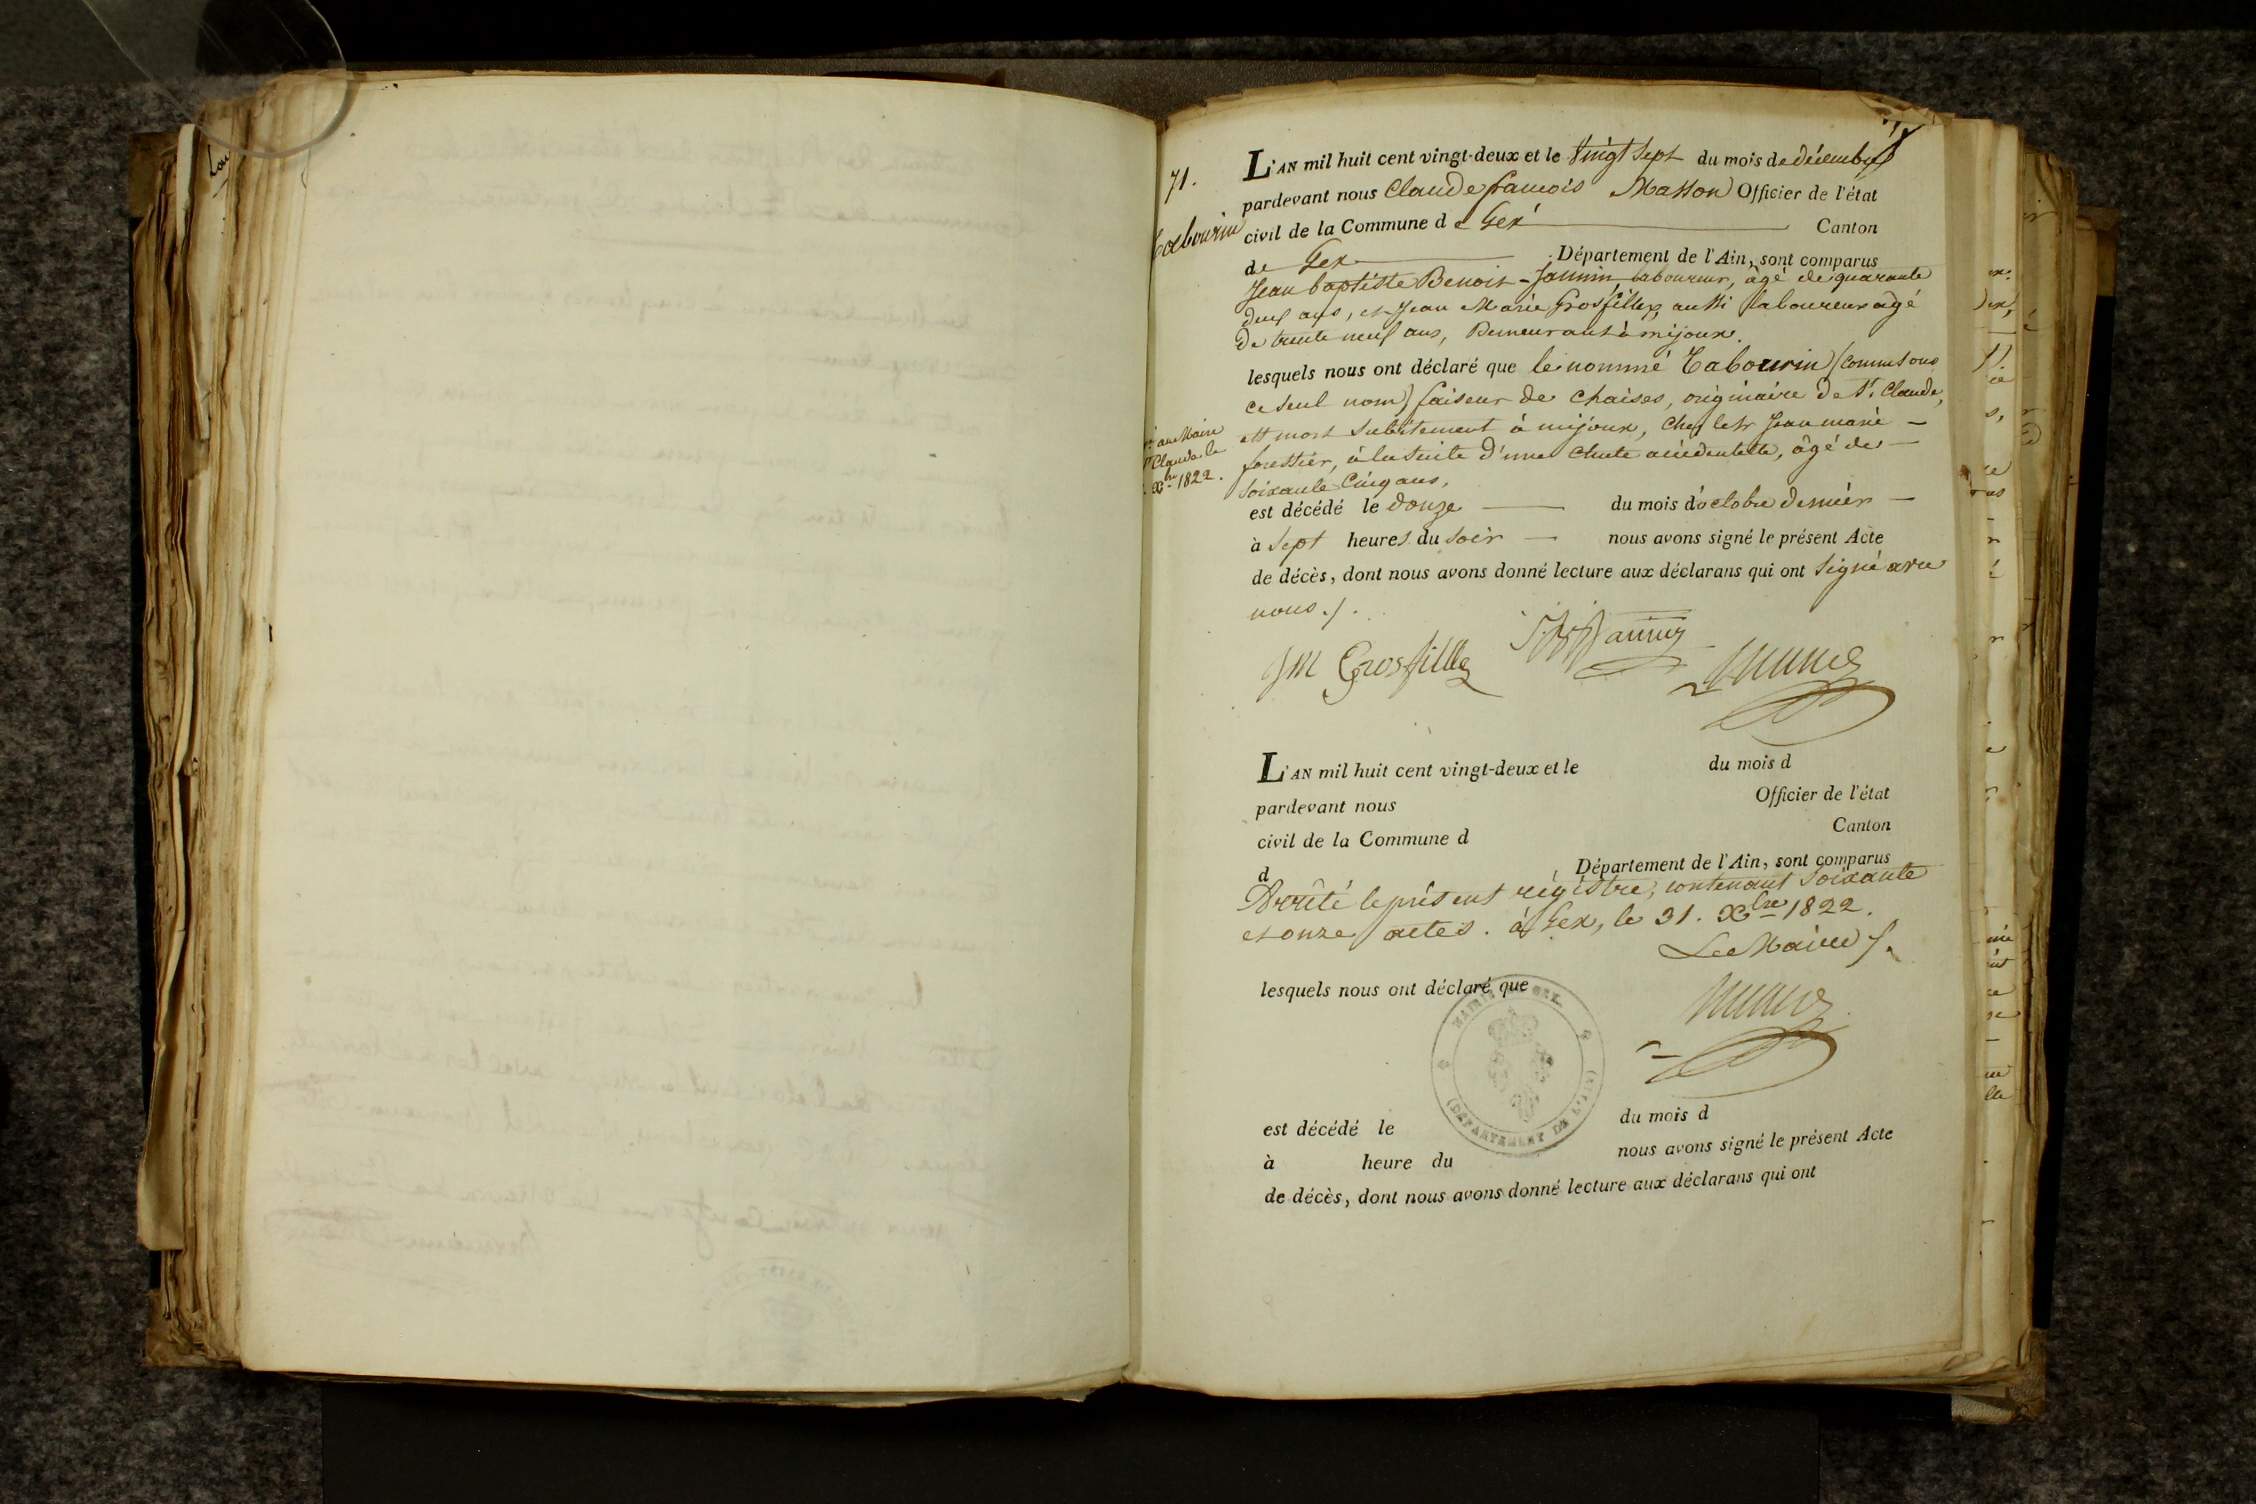 71.
Tabourin
L'AN mil huit cent vingt-deux et le vingt Sept du mois de décembre
pardevant nous Claude françois Masson Officier de l'état
civil de la Commune de Gex Canton
de Gex Département de l'Ain, sont comparus
Jean baptiste Benoit-Jannin, laboureur, âgé de quarante
deux ans, et Jean Marie Grosfillex, aussi laboureur agé
de trente neuf ans, Demeurant à mijoux.
lesquels nous ont déclaré que le nommé Tabourin (connu sous
ce seul nom) faiseur de chaises, originaire de St. Claude,
est mort subitement à mijoux, chez le Sr Jean marie
forestier, à la suite d'une chute accidentelle, âgé de
soixante-Cinq ans,
au Maire
St Claude le
Xbre 1822.
est décédé le douze du mois d'octobre dernier
à sept heures du soir nous avons signé le présent Acte
de décès, dont nous avons donné lecture aux déclarans qui ont signé avec
nous ./.
JM Grosfillex
L'AN mil huit cent vingt-deux et le du mois d
pardevant nous Officier de l'état
civil de la Commune d Canton
d Département de l'Ain, sont comparus
Arrêté le présent régistre, contenant soixante
et onze actes. à Gex, le 31. Xbre 1822.
Le Maire /.
lesquels nous ont déclaré que
MAIRIE DE GEX.
(DÉPARTEMENT DE L'AIN)
est décédé le du mois d
à heure du nous avons signé le présent Acte
de décès, dont nous avons donné lecture aux déclarans qui ont